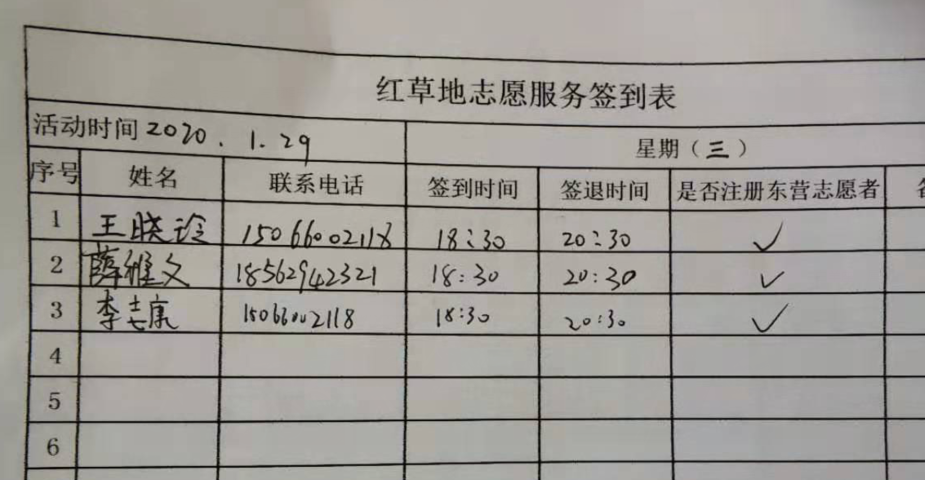 红草地志愿服务签到表
活动时间 2020.1.29 星期（三）
序号 姓名 联系电话 签到时间 签退时间 是否注册东营志愿者
1 王晓 15066002118 18:30 20:30 ✓
2 薛维文 18562942321 18:30 20:30 ✓
3 李志康 15066002118 18:30 20:30 ✓
4
5
6